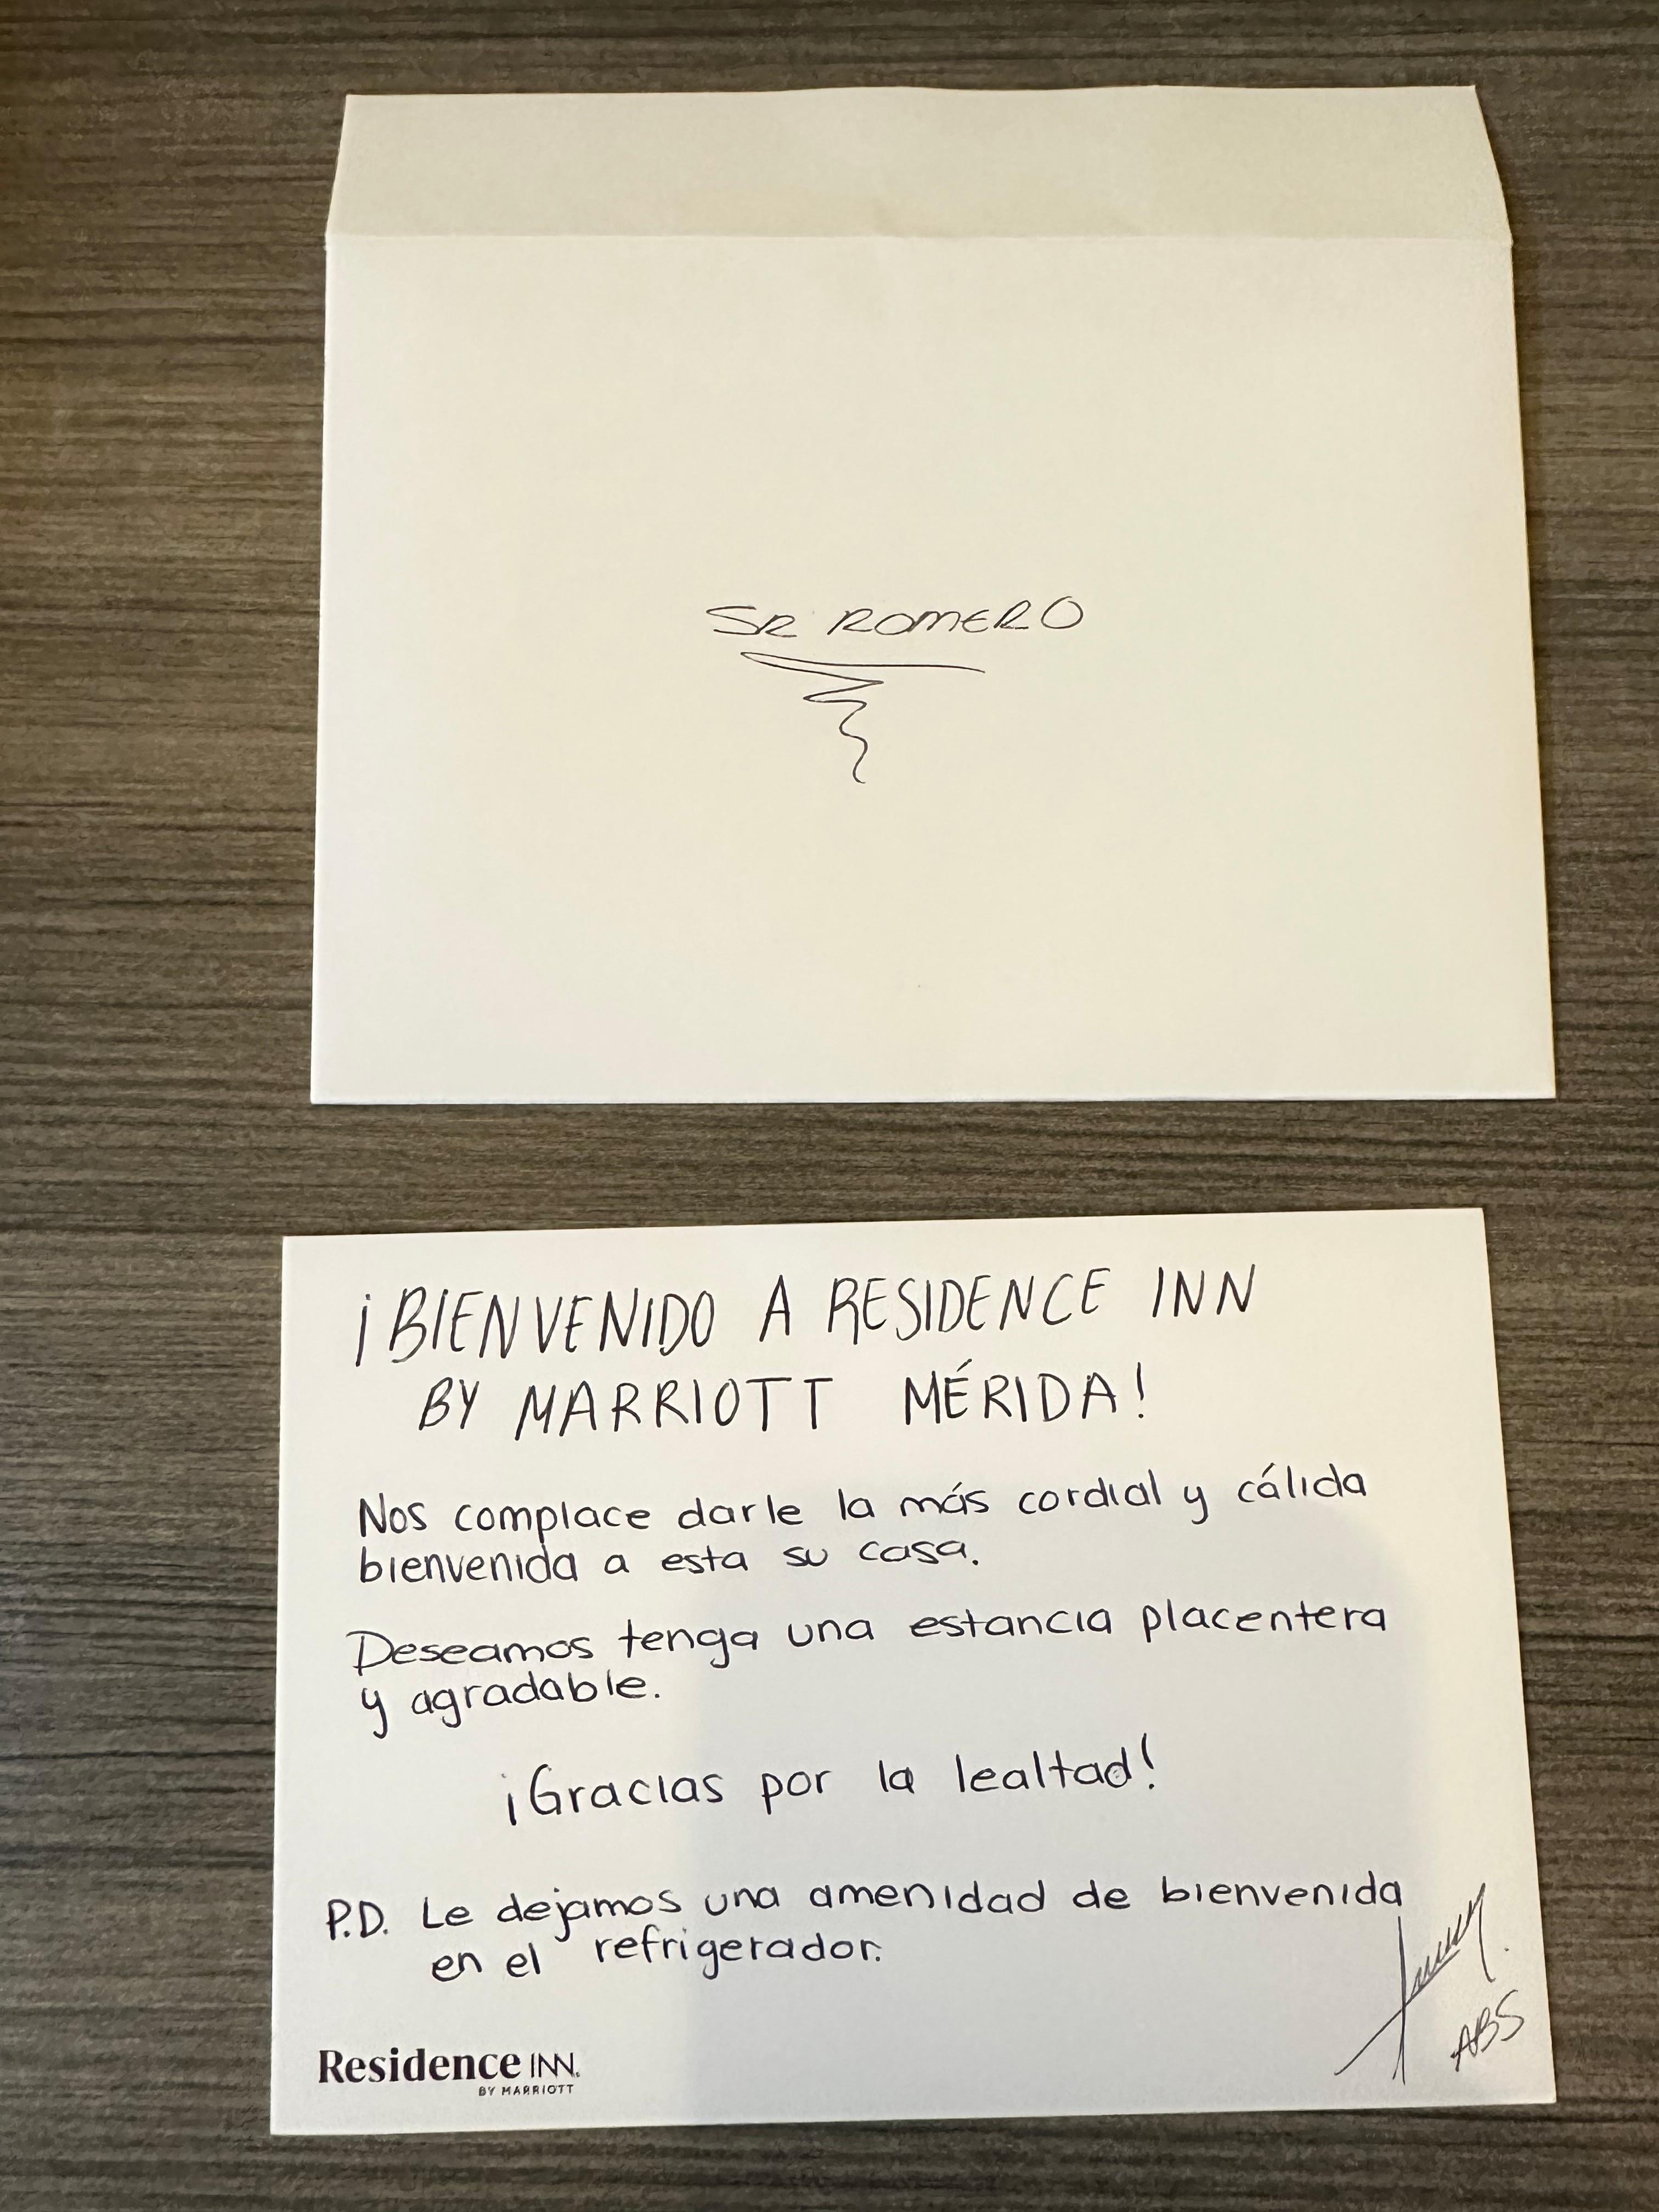 SR ROMERO
¡BIENVENIDO A RESIDENCE INN
BY MARRIOTT MÉRIDA!
Nos complace darle la más cordial y cálida
bienvenida a esta su casa.
Deseamos tenga una estancia placentera
y agradable.
¡Gracias por la lealtad!
P.D. Le dejamos una amenidad de bienvenida
en el refrigerador.
ABS
Residence INN.
BY MARRIOTT